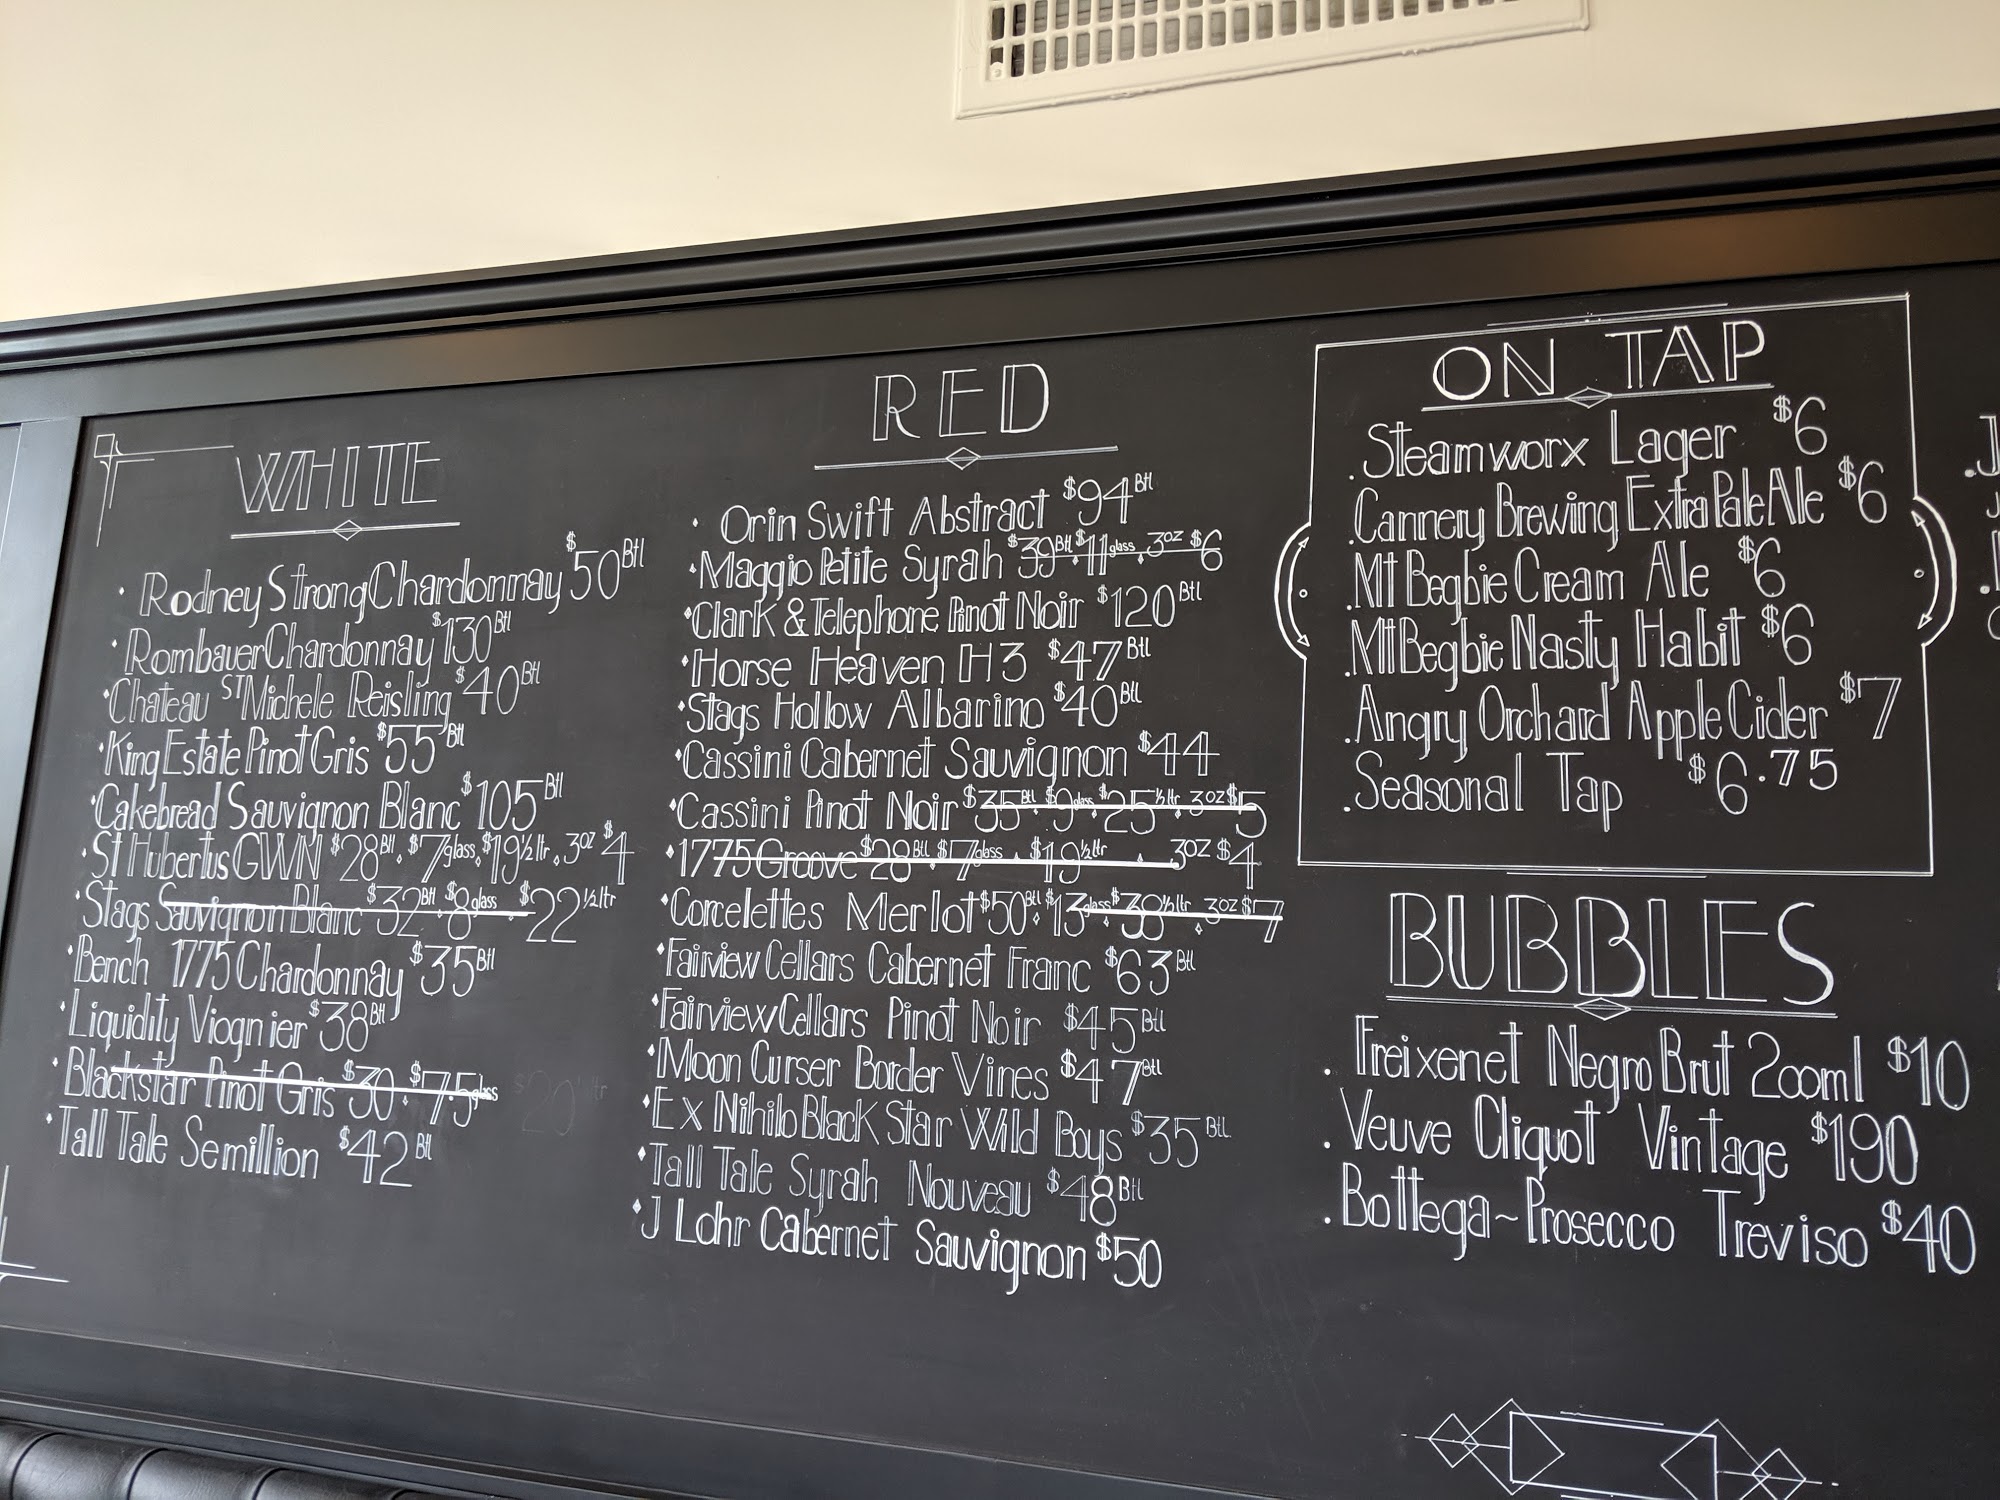 WHITE
Rodney Strong Chardonnay $50 Btl
Rombauer Chardonnay $130 Btl
Chateau ST Michele Reisling $40 Btl
King Estate Pinot Gris $55 Btl
Cakebread Sauvignon Blanc $105 Btl
St Hubertus GWN $28 Btl. $7 glass. $19 ½ ltr. 3oz $4
Stags Sauvignon Blanc $32 Btl $8 glass $22 ½ ltr
Bench 1775 Chardonnay $35 Btl
Liquidity Viognier $38 Btl
Blackstar Pinot Gris $30. $7.5 glass
Tall Tale Semillion $42 Btl
RED
Orin Swift Abstract $94 Btl
Maggio Petite Syrah $39 Btl. $11 glass. 3oz $6
Clark & Telephone Pinot Noir $120 Btl
Horse Heaven H3 $47 Btl
Stags Hollow Albarino $40 Btl
Cassini Cabernet Sauvignon $44
Cassini Pinot Noir $35 Btl. $9 glass. $25 ½ ltr. 3oz $5
1775 Groove $28 Btl $7 glass. $19 ½ ltr. 3oz $4
Corcelettes Merlot $50 Btl. $13 glass. $38 ½ ltr. 3oz $7
Fairview Cellars Cabernet Franc $63 Btl
Fairview Cellars Pinot Noir $45 Btl
Moon Curser Border Vines $47 Btl
Ex Nihilo Black Star Wild Boys $35 Btl
Tall Tale Syrah Nouveau $48 Btl
J Lohr Cabernet Sauvignon $50
ON TAP
Steamworx Lager $6
Cannery Brewing Extra Pale Ale $6
Mt Begbie Cream Ale $6
Mt Begbie Nasty Habit $6
Angry Orchard Apple Cider $7
Seasonal Tap $6.75
BUBBLES
Freixenet Negro Brut 200ml $10
Veuve Cliquot Vintage $190
Bottega ~ Prosecco Treviso $40